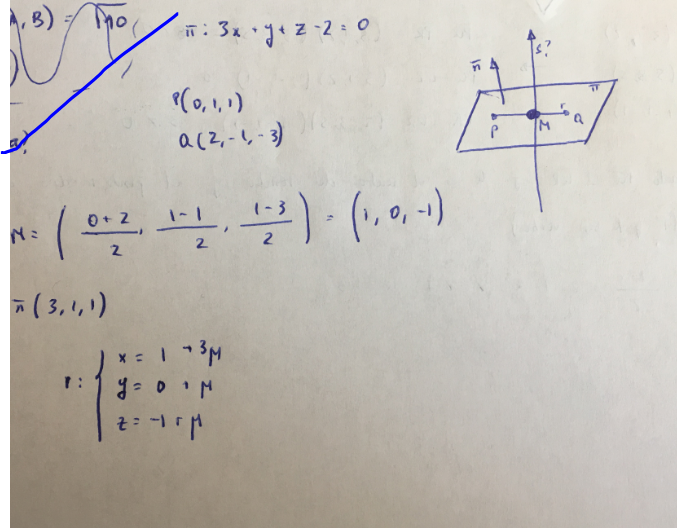 , B) = √110
π: 3x + y + z - 2 = 0
P(0, 1, 1)
Q(2, -1, -3)
s?
n̄
π
P
M
r
Q
M = ( (0+2)/2, (1-1)/2, (1-3)/2 ) = (1, 0, -1)
n̄ (3, 1, 1)
r: { x = 1 + 3μ
y = 0 + μ
z = -1 + μ